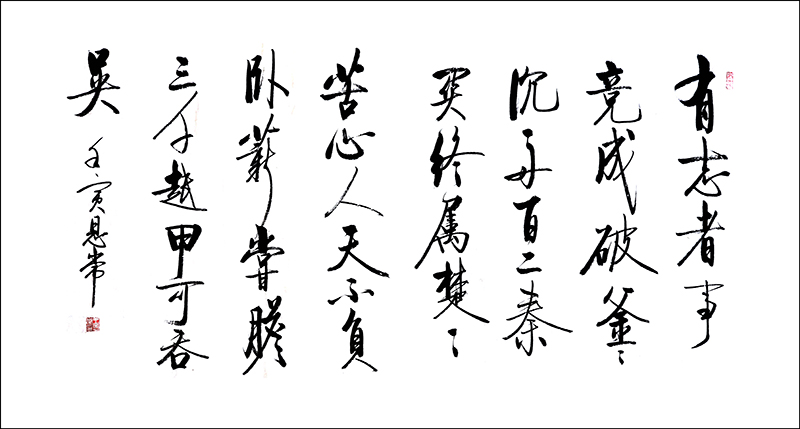 有志者事
竟成破釜
沉舟百二秦
關終属楚
苦心人天不負
卧薪嘗膽
三千越甲可吞
吴
壬寅恩常